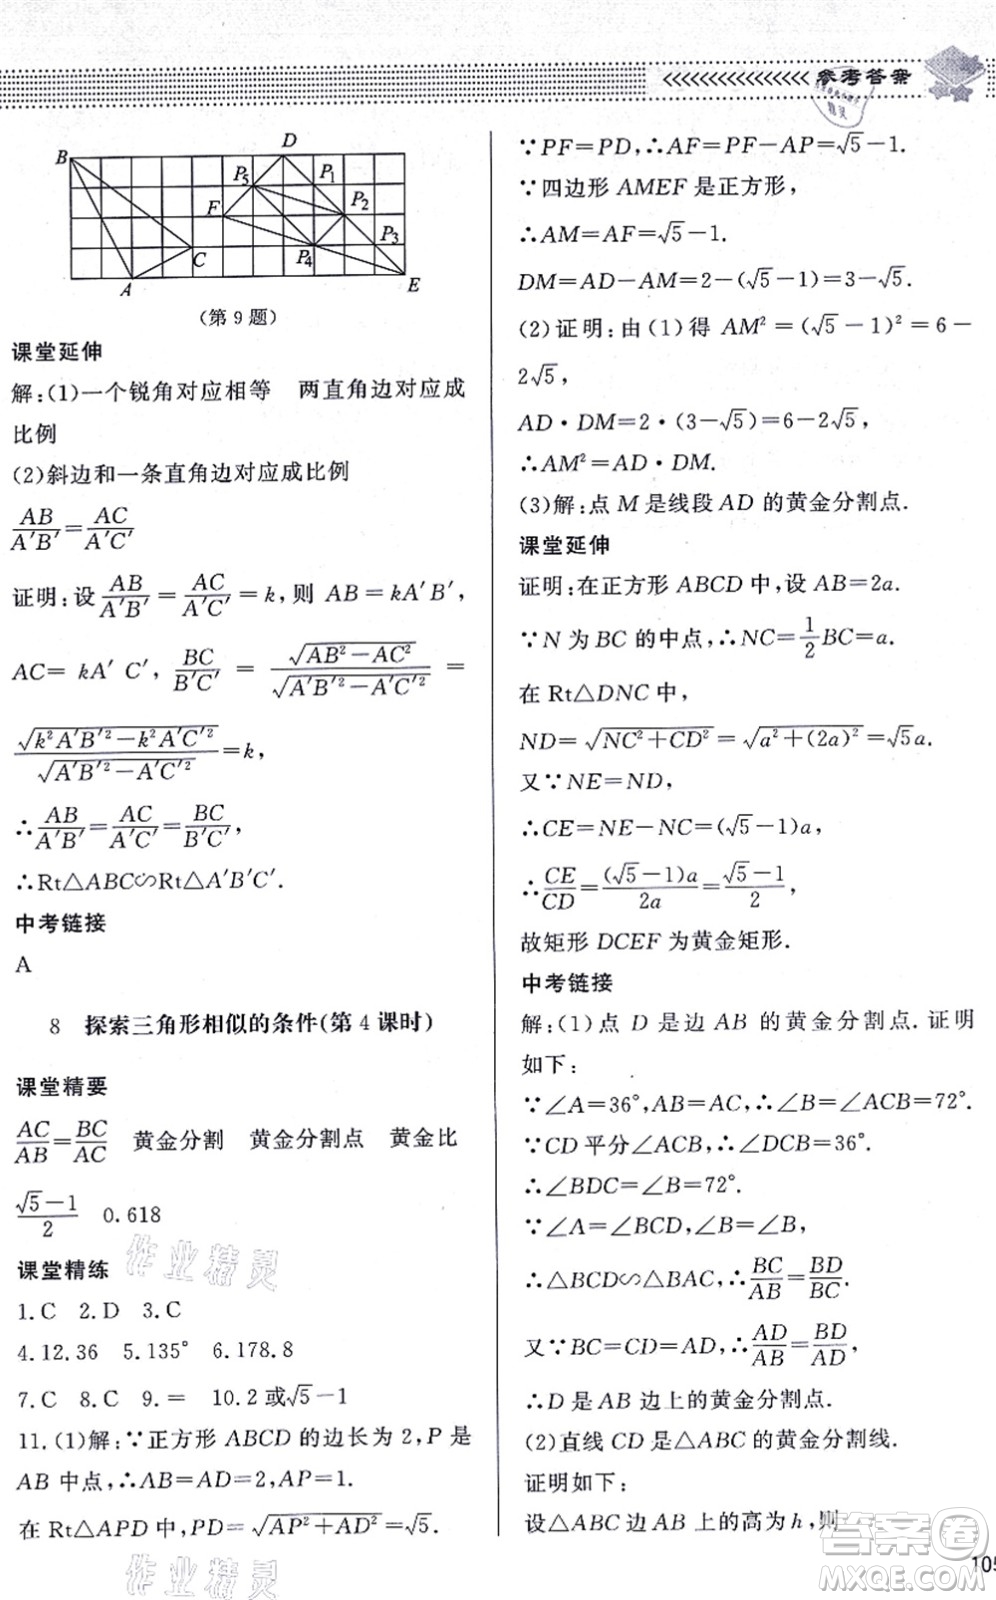 参考答案
B
D
P₅
P₁
F
P₂
C
P₄
P₃
A
E
(第 9 题)
课堂延伸
解:(1)一个锐角对应相等 两直角边对应成
比例
(2)斜边和一条直角边对应成比例
AB/A′B′=AC/A′C′
证明:设AB/A′B′=AC/A′C′=k,则 AB=kA′B′,
AC=kA′C′,BC/B′C′=√(AB²-AC²)/√(A′B′²-A′C′²)=
√(k²A′B′²-k²A′C′²)/√(A′B′²-A′C′²)=k,
∴AB/A′B′=AC/A′C′=BC/B′C′,
∴Rt△ABC∽Rt△A′B′C′.
中考链接
A
8 探索三角形相似的条件(第 4 课时)
课堂精要
AC/AB=BC/AC 黄金分割 黄金分割点 黄金比
(√5-1)/2 0.618
课堂精练
1.C 2.D 3.C
4.12.36 5.135° 6.178.8
7.C 8.C 9.= 10.2或√5-1
11.(1)解:∵正方形 ABCD 的边长为 2,P 是
AB 中点,∴AB=AD=2,AP=1.
在 Rt△APD 中,PD=√(AP²+AD²)=√5.
∵PF=PD,∴AF=PF-AP=√5-1.
∵四边形 AMEF 是正方形,
∴AM=AF=√5-1.
DM=AD-AM=2-(√5-1)=3-√5.
(2)证明:由(1)得 AM²=(√5-1)²=6-
2√5,
AD·DM=2·(3-√5)=6-2√5,
∴AM²=AD·DM.
(3)解:点 M 是线段 AD 的黄金分割点.
课堂延伸
证明:在正方形 ABCD 中,设 AB=2a.
∵N 为 BC 的中点,∴NC=1/2BC=a.
在 Rt△DNC 中,
ND=√(NC²+CD²)=√(a²+(2a)²)=√5a.
又∵NE=ND,
∴CE=NE-NC=(√5-1)a,
∴CE/CD=(√5-1)a/2a=(√5-1)/2,
故矩形 DCEF 为黄金矩形.
中考链接
解:(1)点 D 是边 AB 的黄金分割点.证明
如下:
∵∠A=36°,AB=AC,∴∠B=∠ACB=72°.
∵CD 平分∠ACB,∴∠DCB=36°.
∴∠BDC=∠B=72°.
∵∠A=∠BCD,∠B=∠B,
∴△BCD∽△BAC,∴BC/AB=BD/BC.
又∵BC=CD=AD,∴AD/AB=BD/AD,
∴D 是 AB 边上的黄金分割点.
(2)直线 CD 是△ABC 的黄金分割线.
证明如下:
设△ABC 边 AB 上的高为 h,则
105
作业精灵
作业精灵
答案卷
MXQE.COM